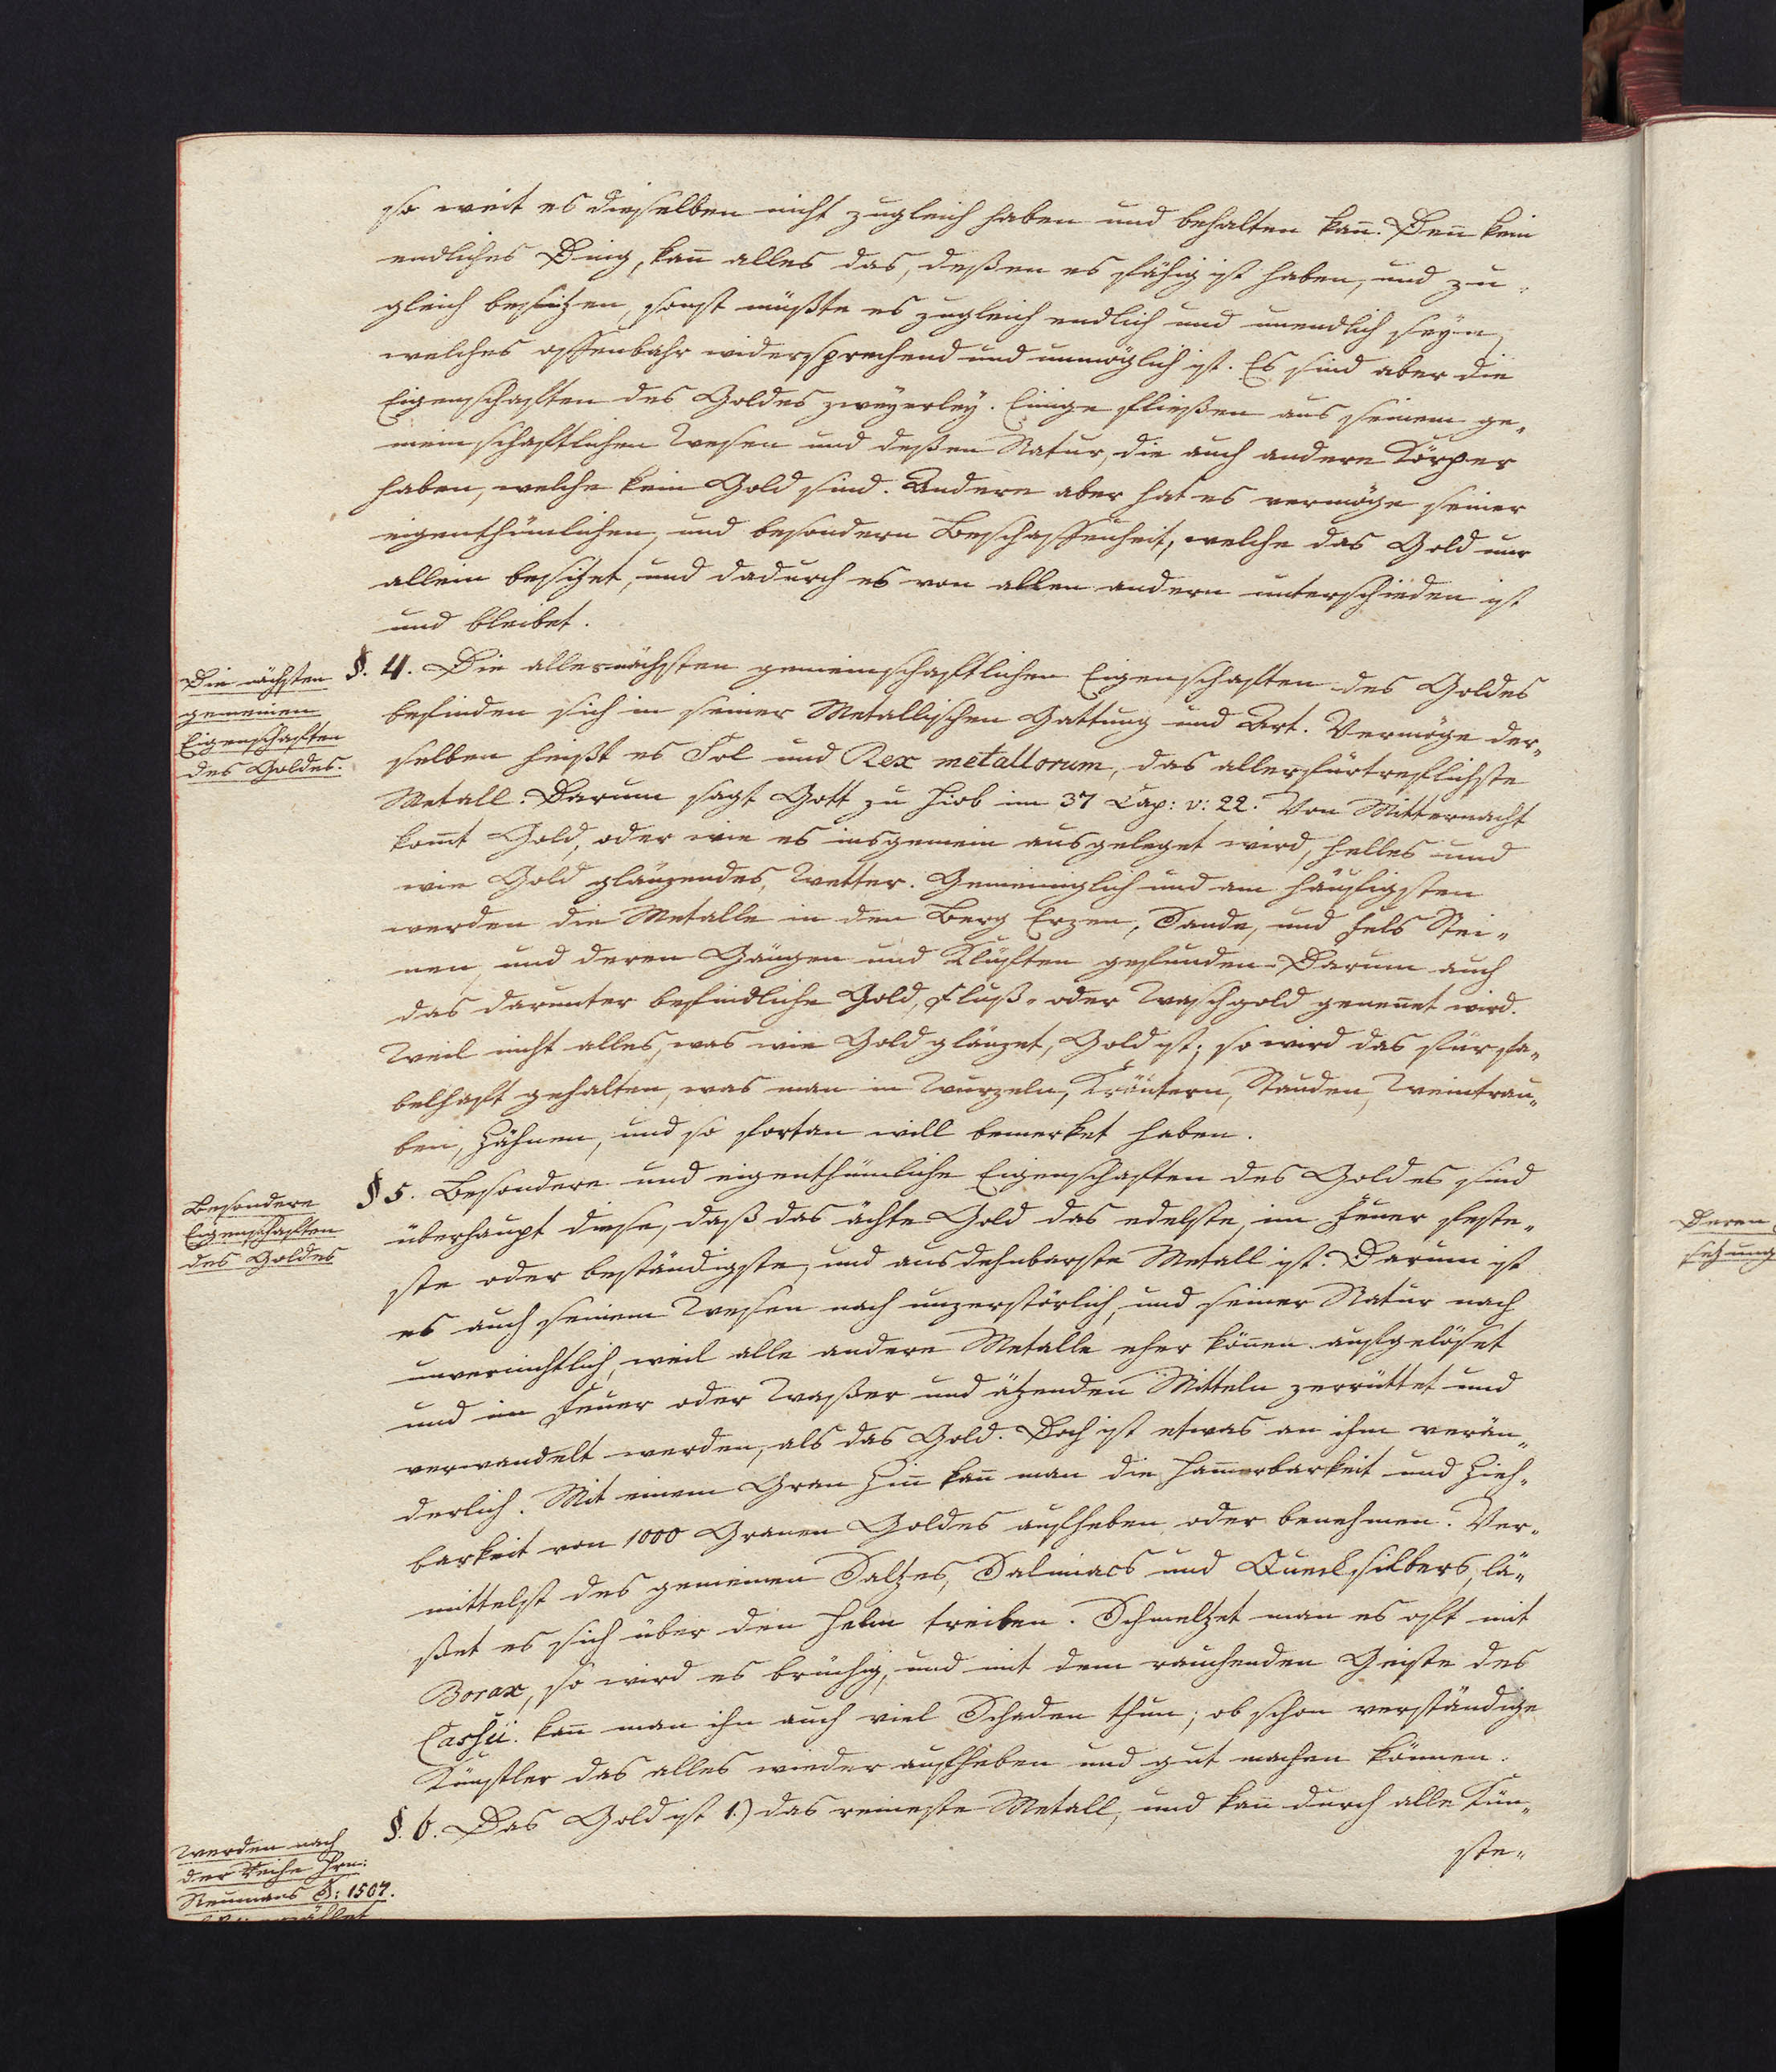 so weit es dieselben nicht zugleich haben und behalten kañ. Deñ kein
endliches Ding, kañ alles das, deßen es fähig ist haben, und zu„
gleich besitzen, sonst müßte es zugleich endlich und unendlich seyn,
welches offenbahr widersprechend und unmöglich ist. Es sind aber die
Eigenschafften des Goldes zweyerley. Einige fließen aus seinem ge„
meinschafftlichen Wesen und deßen Natur, die auch andere Körper
haben, welche kein Gold sind. Andere aber hat es vermöge seiner
eigenthümlichen, und besondern Beschaffenheit, welche das Gold nur
allein besizet, und dadurch es von allen andern unterschieden ist
und bleibet.
Die nächsten
gemeinen
Eigenschafften
des Goldes.
§. 4. Die allernächsten gemeinschafftlichen Eigenschafften des Goldes
befinden sich in seiner Metallischen Gattung und Art. Vermöge der„
selben heißt es Sol und Rex metallorum, das allerfürtreflichste
Metall. Darum sagt Gott zu Hiob im 37 Cap: v: 22. Von Mitternacht
kom̃t Gold, oder wie es insgemein ausgeleget wird, helles und
wie Gold glänzendes, Wetter. Gemeiniglich und am häufigsten
werden die Metalle in den Berg Erzen, Sande, und Fels Stei„
nen, und deren Gängen und Klüfften gefunden. Darum auch
das darunter befindliche Gold, Fluß- oder Waschgold geneñet wird.
Weil nicht alles, was wie Gold glänzet, Gold ist; so wird das für fa„
belhafft gehalten, was man in Wurzeln, Kräutern, Stauden, Weintrau„
ben, Zähnen, und so fortan will bemerket haben.
Besondere
Eigenschafften
des Goldes
§ 5. Besondere und eigenthümliche Eigenschafften des Goldes sind
überhaupt diese, daß das ächte Gold das edelste, im Feuer feste„
ste oder beständigste, und ausdehnbarste Metall ist. Darum ist
es auch seinem Wesen nach unzerstörlich, und seiner Natur nach
unvernichtlich, weil alle andere Metalle eher köñen aufgelöset
und im Feuer oder Waßer und ätzenden Mitteln zerrüttet und
verwandelt werden, als das Gold. Doch ist etwas an ihm verän„
derlich. Mit einem Gran Ziñ kañ man die Ham̃erbarkeit und Zieh„
barkeit von 1000 Granen Goldes aufheben oder benehmen. Ver„
mittelst des gemeinen Saltzes, Salmiacs und Quecksilbers, lä„
ßet es sich über den Helm treiben. Schmeltzet man es offt mit
Borax, so wird es brüchig, und mit dem rauchenden Geiste des
Cassii. kañ man ihn auch viel Schaden thun; ob schon verständige
Künstler das alles wieder aufheben und gut machen können.
werden nach
der Reihe Hrn:
Neumans S: 1507.
§. 6. Das Gold ist 1.) das reineste Metall, und kañ durch alle Kün„
ste„
Deren
setzung